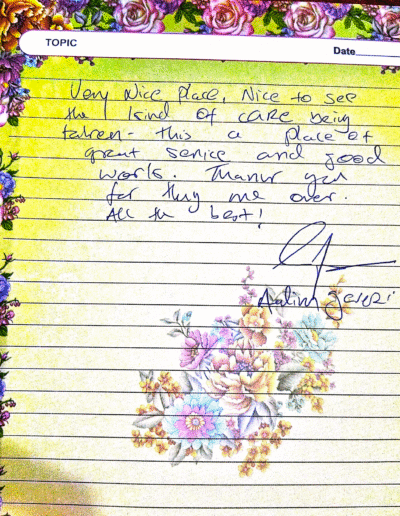 TOPIC
Date
Very Nice Place, Nice to see
the kind of care being
taken - this a place of
great service and good
work. Thank you
for me over.
All the best!